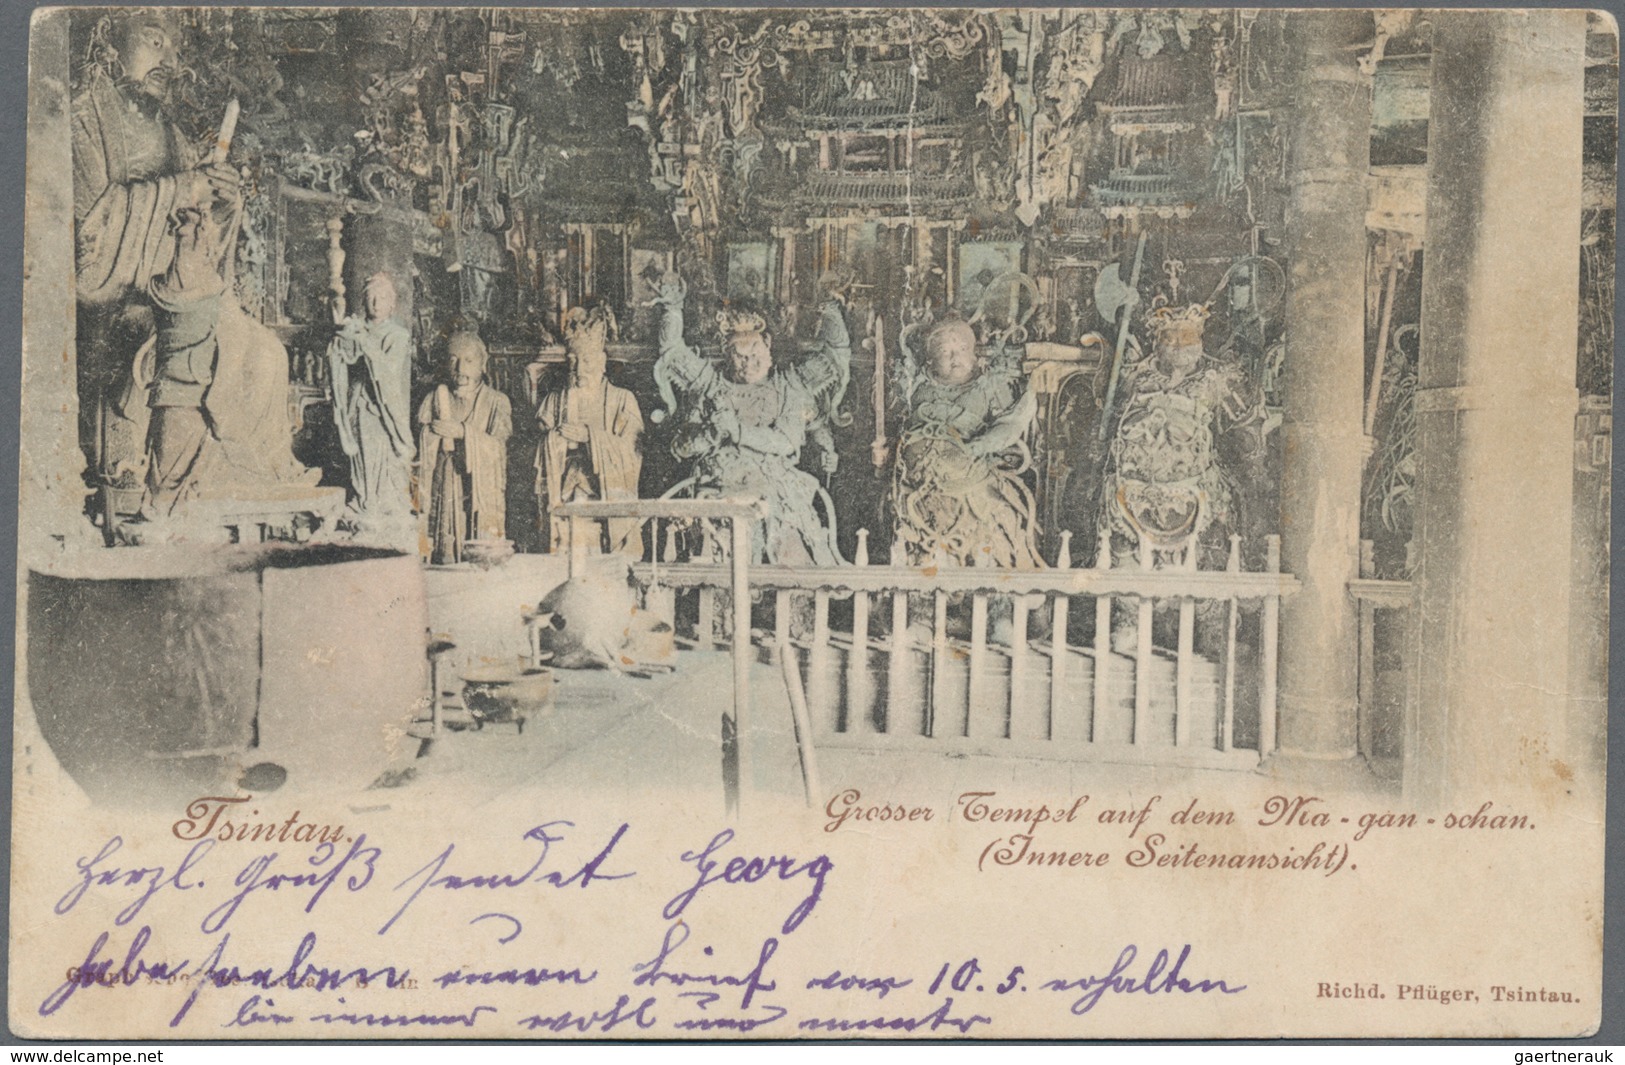 Tsintau.
Grosser Tempel auf dem Ma-gan-schan.
(Innere Seitenansicht).
Herzl. Gruß sendet Georg
habe soeben euern Brief vom 10. 5. erhalten
bin immer wohl und munter
Richd. Pflüger, Tsintau.
www.delcampe.net
gaertnerauk